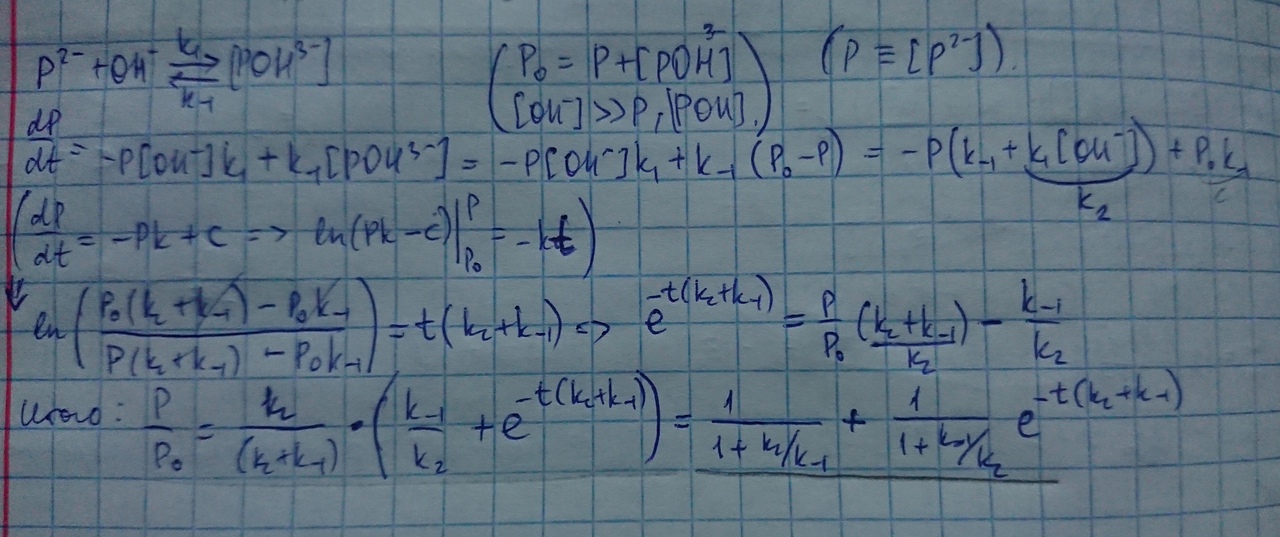 P²⁻ + OH⁻ ⇄ [POH³⁻] k₁ k₋₁ (P₀ = P + [POH³⁻] (P ≡ [P²⁻]).
[OH⁻] >> P, [POH].)
dP/dt = -P[OH⁻]k₁ + k₋₁[POH³⁻] = -P[OH⁻]k₁ + k₋₁(P₀-P) = -P(k₋₁ + k₁[OH⁻]) + P₀k₋₁
k₂ c
(dP/dt = -Pk + c => ln(Pk-c)|ᴾ_P₀ = -kt)
ln((P₀(k₂+k₋₁) - P₀k₋₁)/(P(k₂+k₋₁) - P₀k₋₁)) = t(k₂+k₋₁) => e^(-t(k₂+k₋₁)) = P/P₀ (k₂+k₋₁)/k₂ - k₋₁/k₂
Итого: P/P₀ = k₂/(k₂+k₋₁) • (k₋₁/k₂ + e^(-t(k₂+k₋₁))) = 1/(1+k₂/k₋₁) + 1/(1+k₋₁/k₂) e^(-t(k₂+k₋₁))